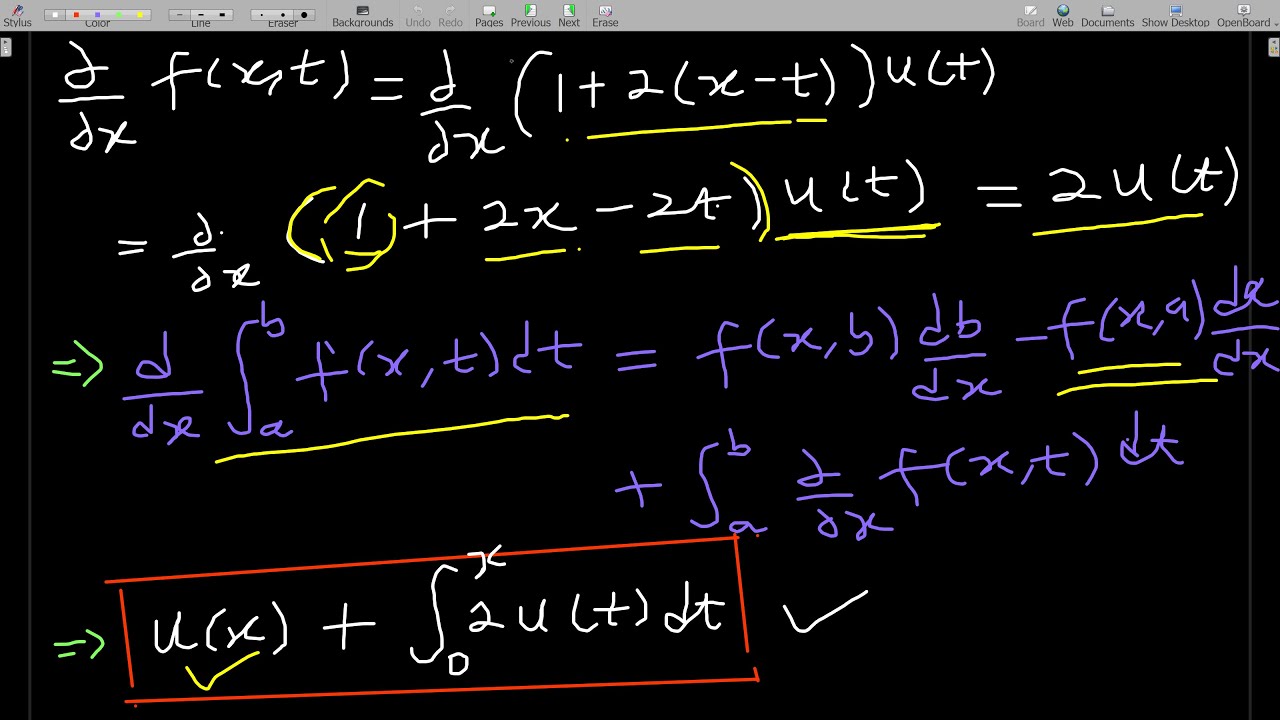 Stylus Color Line Eraser Backgrounds Undo Redo Pages Previous Next Erase Board Web Documents Show Desktop OpenBoard
∂/∂x f(x,t) = ∂/∂x (1 + 2(x-t)) u(t)
= ∂/∂x (1 + 2x - 2t) u(t) = 2u(t)
⇒ d/dx ∫_a^b f(x,t) dt = f(x,b) db/dx - f(x,a) da/dx
+ ∫_a^b ∂/∂x f(x,t) dt
⇒ u(x) + ∫_0^x 2u(t) dt ✓